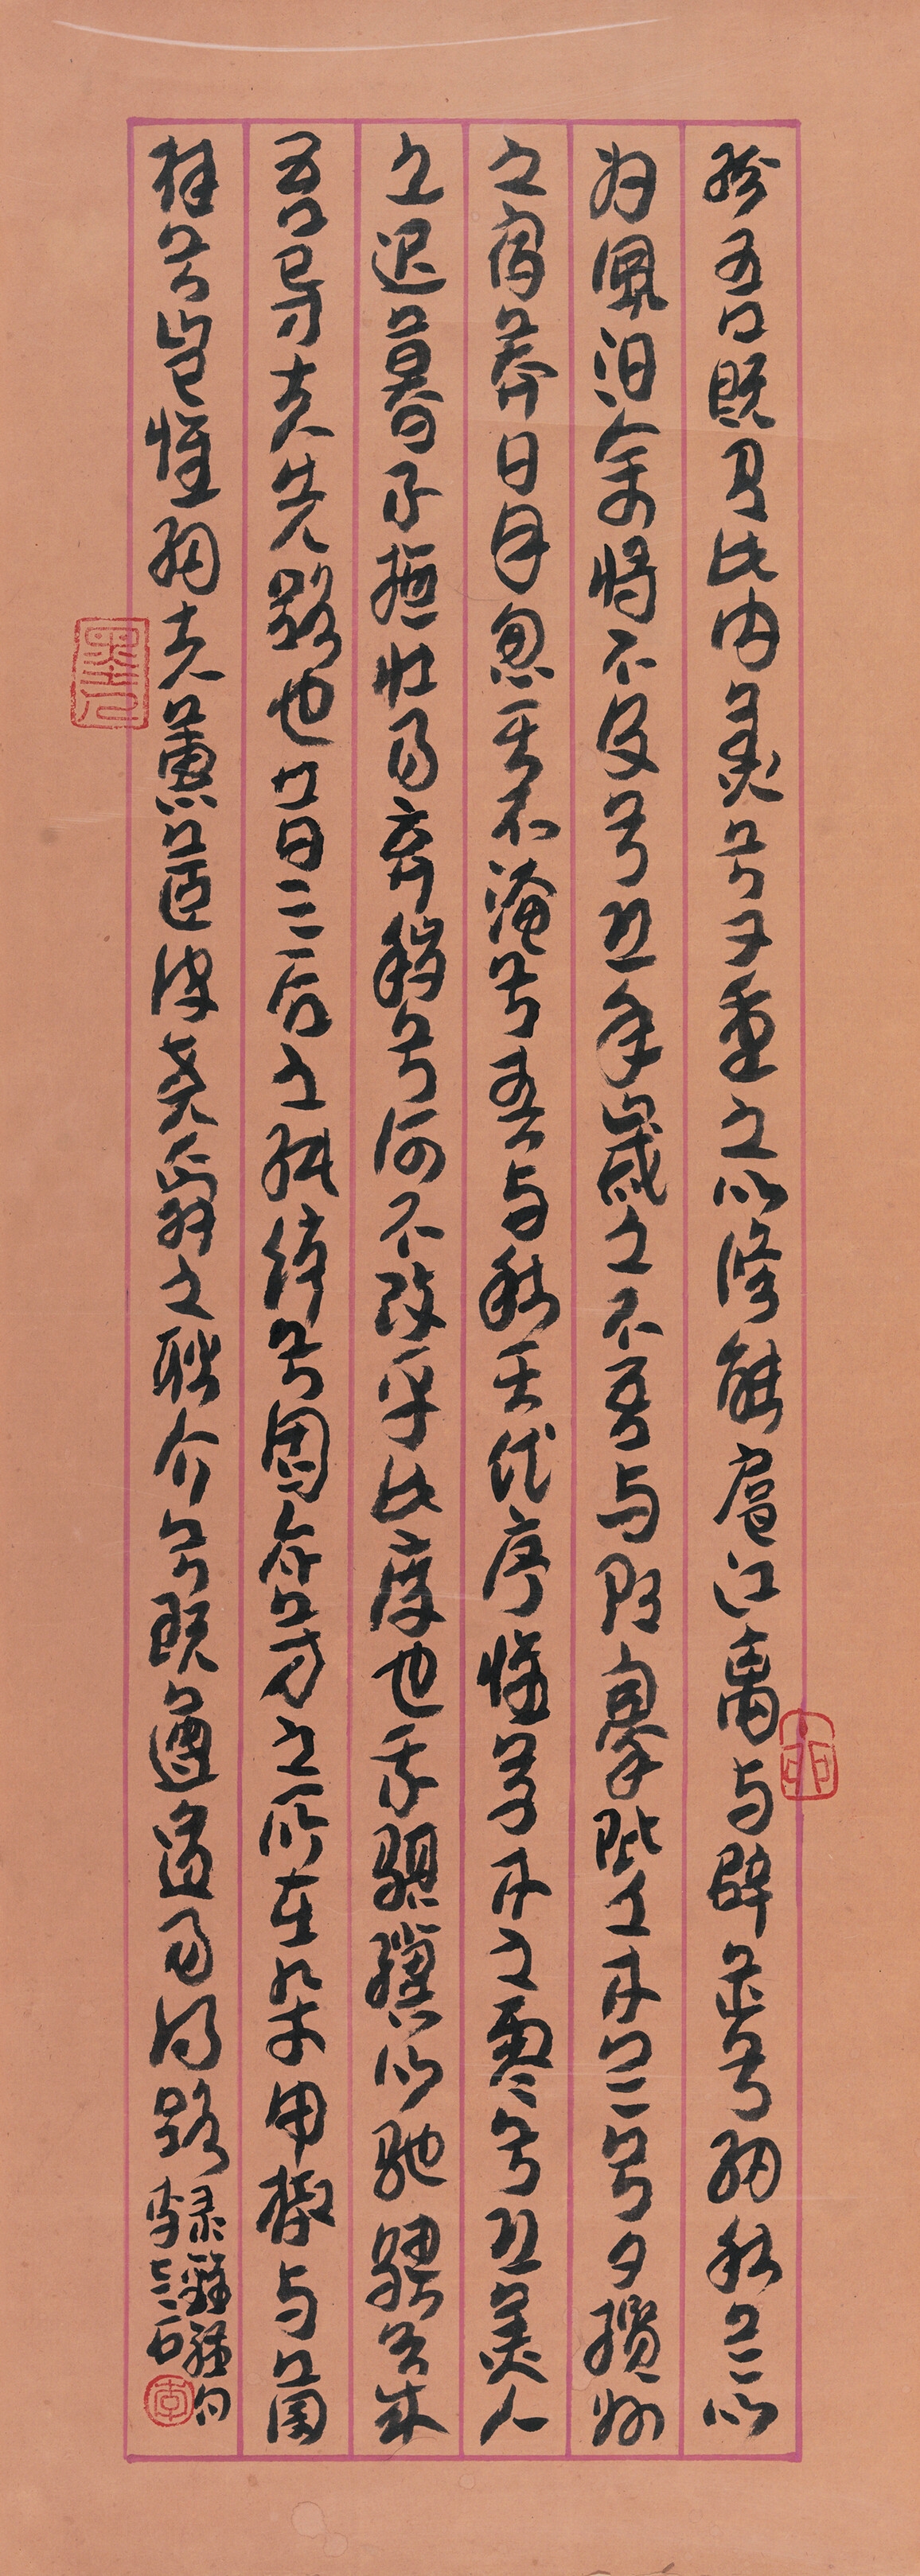 紛吾既有此内美兮又重之以修能扈江离与辟芷兮紉秋兰以
为佩汩余將不及兮恐年歲之不吾与朝搴阰之木兰兮夕攬洲
之宿莽日月忽其不淹兮春与秋其代序惟草木之零兮恐美人
之迟暮不撫壯而弃穢兮何不改乎此度也乘騏驥以馳騁兮来
吾导夫先路也昔三后之純粹兮固众芳之所在杂申椒与菌
桂兮岂惟紉夫蕙茝彼尧舜之耿介兮既遵道而得路
录離騷句
李石